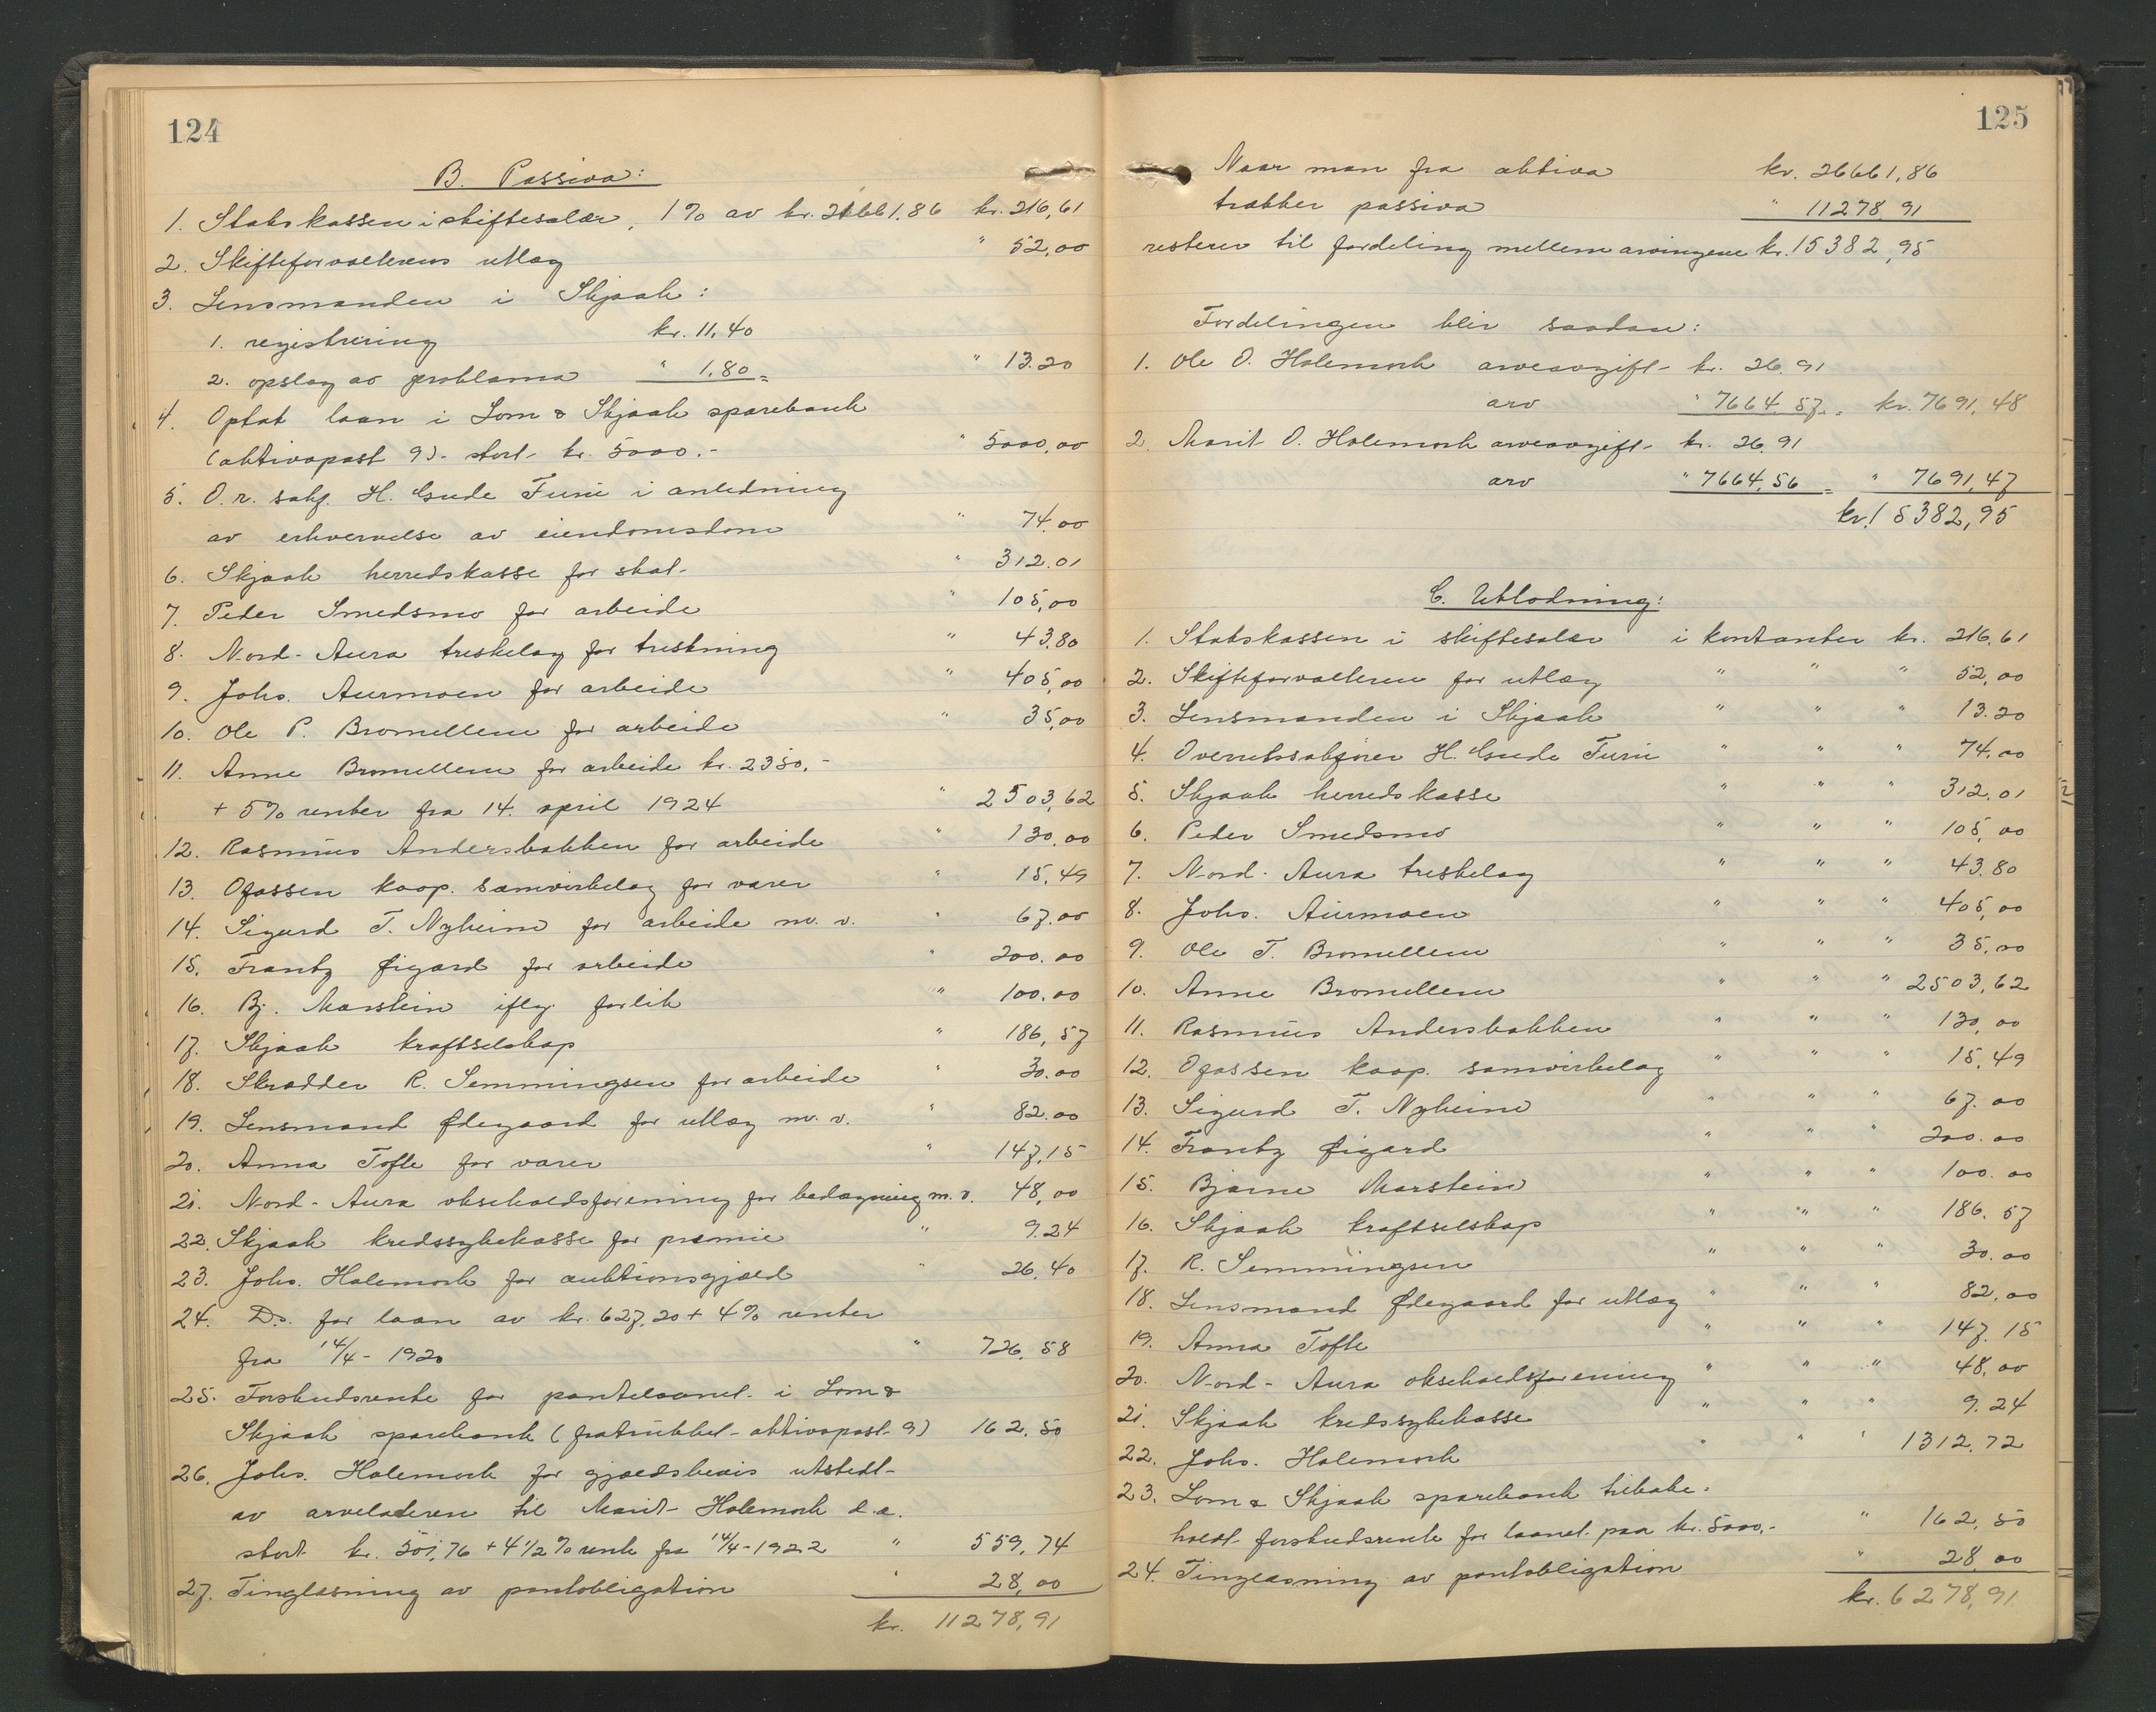 124
B. Passiva:
1. Statskassen i skiftesalær, 1% av kr. 21661.86 kr. 216,61
2. Skifteforvalterens utlæg " 52,00
3. Lensmanden i Skjaak:
1. registrering kr. 11,40
2. opslag av proklama " 1,80 = " 13.20
4. Optat laan i Lom & Skjaak sparebank
(aktivapost 9) - stort kr. 5000.- " 5000,00
5. O.r. sakf. H. Gude Furu i anledning
av erhvervelse av eiendomsdom " 74.00
6. Skjaak herredskasse for skat " 312.01
7. Peder Smedsmo for arbeide " 105,00
8. Nord-Aura treskelag for treskning " 43,80
9. Johs. Aurmoen for arbeide " 405,00
10. Ole P. Bromellem for arbeide " 35,00
11. Anne Bromellem for arbeide kr. 2350.-
+ 5% renter fra 14. april 1924 " 2503,62
12. Rasmus Andersbakken for arbeide " 130,00
13. Ofossen koop. samvirkelag for varer " 15,49
14. Sigurd T. Nyheim for arbeide m. v. " 67.00
15. Frantz Øigard for arbeide " 200.00
16. Bj. Marstein iflg. forlik " 100.00
17. Skjaak kraftselskap " 186,57
18. Skrædder R. Semmingsen for arbeide " 30.00
19. Lensmand Ødegaard for utlæg m. v. " 82.00
20. Anna Tofte for varer " 147,15
21. Nord-Aura okseholdsforening for bedægning m. v. 48,00
22. Skjaak kredssykekasse for præmie " 9.24
23. Johs. Holemork for auktionsgjæld " 26,40
24. Do. for laan av kr. 627,20 + 4% renter
fra 14/4-1920 " 726,58
25. Forskudsrente for pantelaanet i Lom &
Skjaak sparebank (fratrukket aktivapost 9) 162,50
26. Johs. Holemork for gjældsbevis utstedt
av arveladeren til Marit Holemork d.e.
stort kr. 501,76 + 4 1/2% rente fra 14/4-1922 " 559,74
27. Tinglæsning av pantobligation " 28,00
kr. 11278,91
125
Naar man fra aktiva kr. 26661,86
trækker passiva " 11278,91
resterer til fordeling mellem arvingene kr. 15382,95
Fordelingen blir saadan:
1. Ole O. Holemork arveavgift kr. 26.91
arv " 7664.57 = kr. 7691,48
2. Marit O. Holemork arveavgift kr. 26,91
arv " 7664,56 = " 7691,47
kr. 15382,95
C. Utlodning:
1. Statskassen i skiftesalær i kontanter kr. 216,61
2. Skifteforvalteren for utlæg " " " 52,00
3. Lensmanden i Skjaak " " " 13.20
4. Overretssakfører H. Gude Furu " " " 74,00
5. Skjaak herredskasse " " " 312.01
6. Peder Smedsmo " " " 105,00
7. Nord-Aura treskelag " " " 43.80
8. Johs. Aurmoen " " " 405,00
9. Ole T. Bromellem " " " 35,00
10. Anne Bromellem " " " 2503,62
11. Rasmus Andersbakken " " " 130,00
12. Ofossen koop. samvirkelag " " " 15,49
13. Sigurd T. Nyheim " " " 67.00
14. Frantz Øigard " " " 200.00
15. Bjarne Marstein " " " 100.00
16. Skjaak kraftselskap " " " 186.57
17. R. Semmingsen " " " 30.00
18. Lensmand Ødegaard for utlæg " " " 82,00
19. Anna Tofte " " " 147.15
20. Nord-Aura okseholdsforening " " " 48,00
21. Skjaak kredssykekasse " " " 9.24
22. Johs. Holemork " " " 1312.72
23. Lom & Skjaak sparebank tilbake-
holdt forskudsrente for laanet paa kr. 5000,- " 162,50
24. Tinglæsning av pantobligation " 28,00
kr. 6278,91